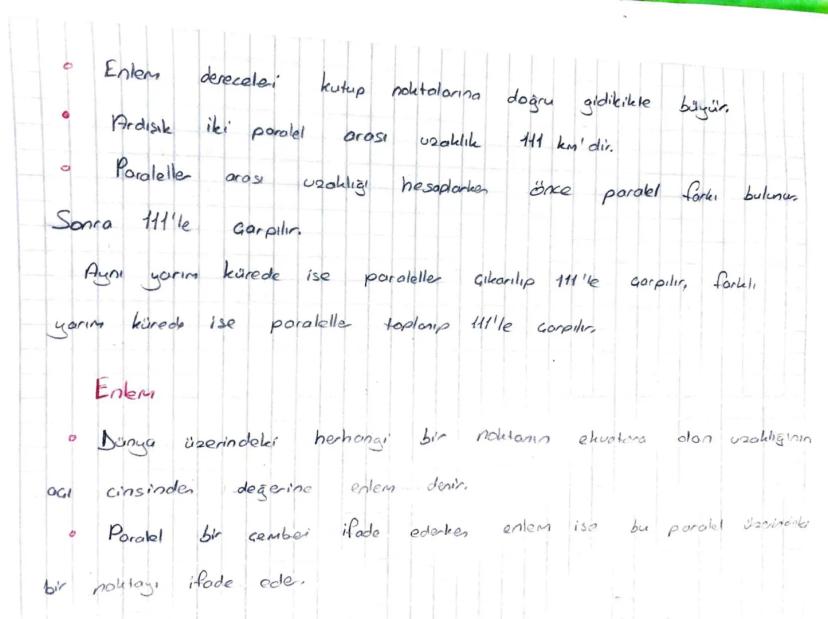 Enlem dereceleri kutup noktalarına doğru gidikikle büyür.
Ardışık iki paralel arası uzaklık 111 km'dir.
Paraleller arası uzaklığı hesaplarken önce paralel farkı bulunur.
Sonra 111'le çarpılır.
Aynı yarım kürede ise paraleller çıkarılıp 111'le çarpılır, farklı
yarım kürede ise paraleller toplanıp 111'le çarpılır.
Enlem
Dünya üzerindeki herhangi bir noktanın ekvatora olan uzaklığının
açı cinsinden değerine enlem denir.
Paralel bir çemberi ifade ederken enlem ise bu paralel üzerindeki
bir noktayı ifade eder.